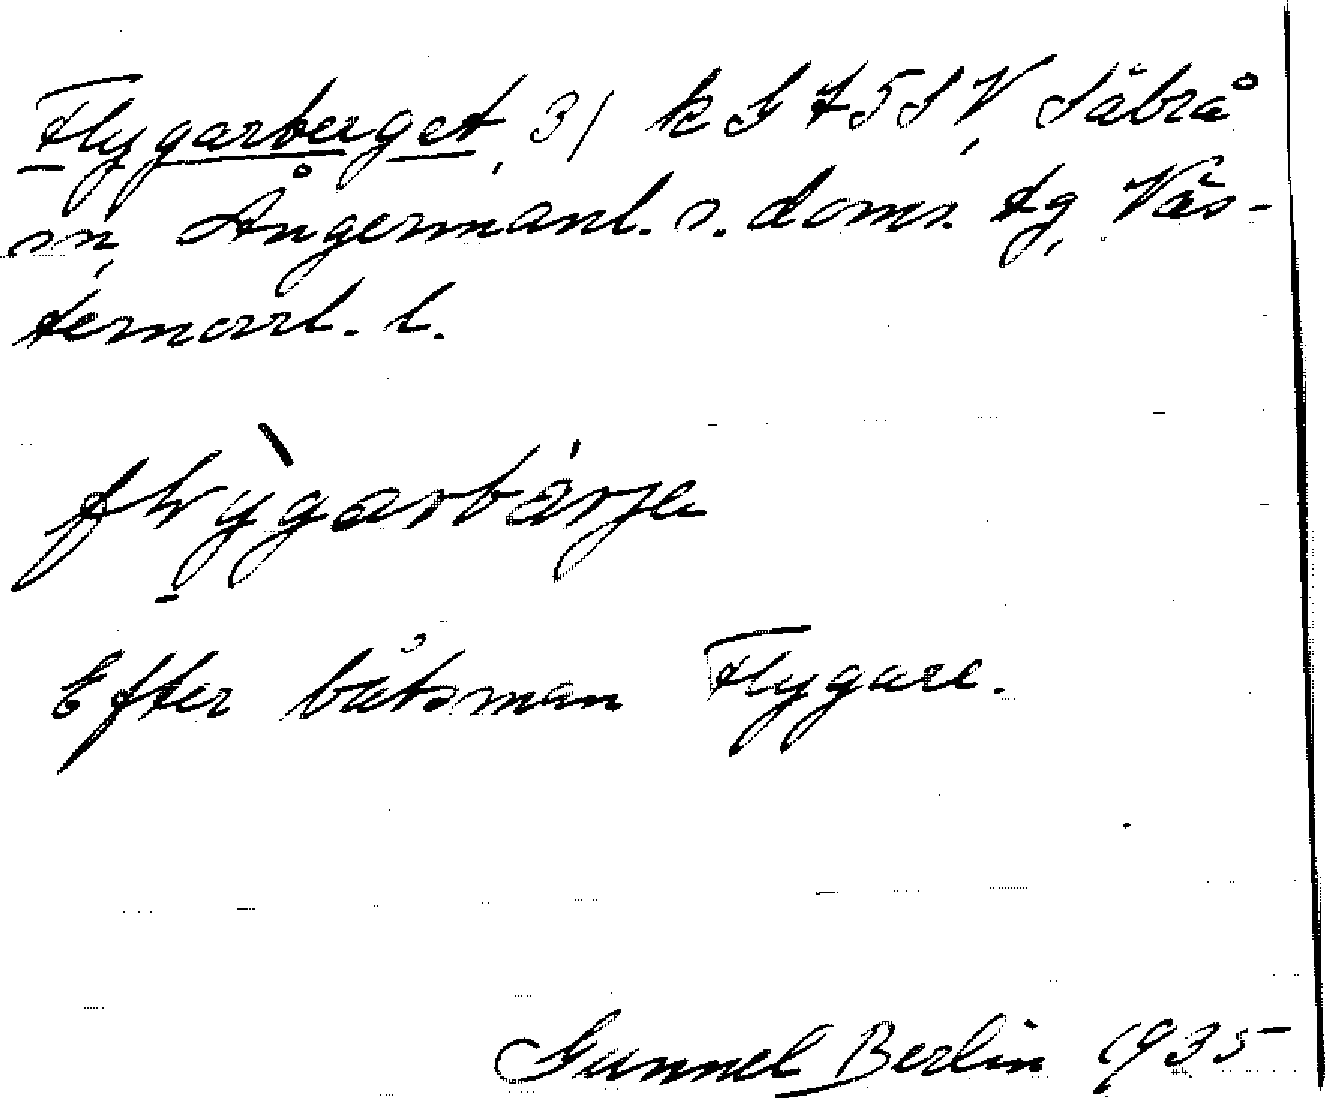 Flygarberget, 31 k G 75 SV, Säbrå
sn, Ångermanl. s. doms. tg, Väs-
ternorrl. l.
flỳgarbärje
Efter båtsman Flygare.
Gunnel Berlin 1935